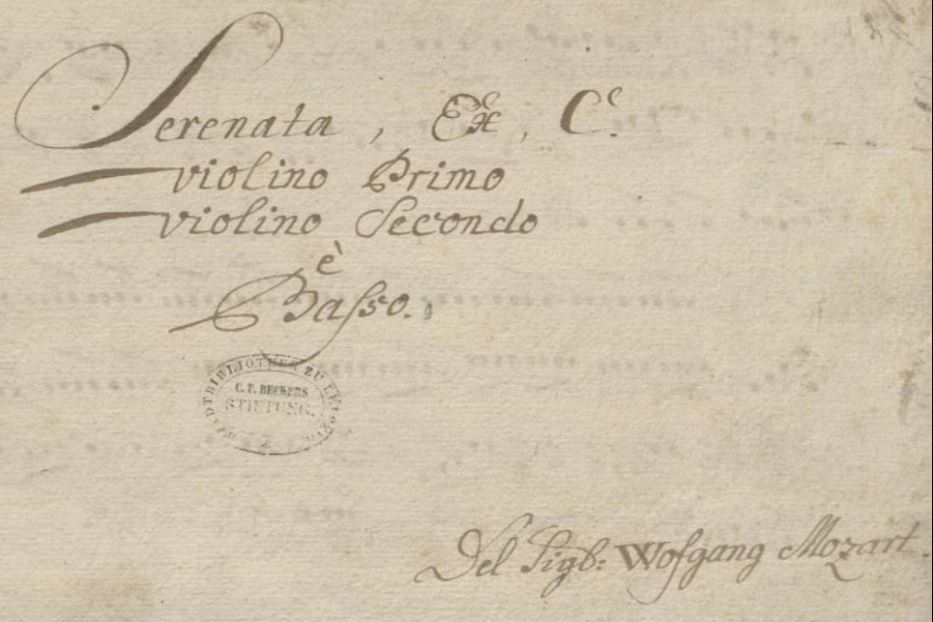 Serenata, Ex, C.
violino Primo
violino Secondo
è
Basso.
STADTBIBLIOTHEK ZU LEIPZIG
C. F. BECKERS
STIFTUNG.
Del Sigb: Wofgang Mozart.